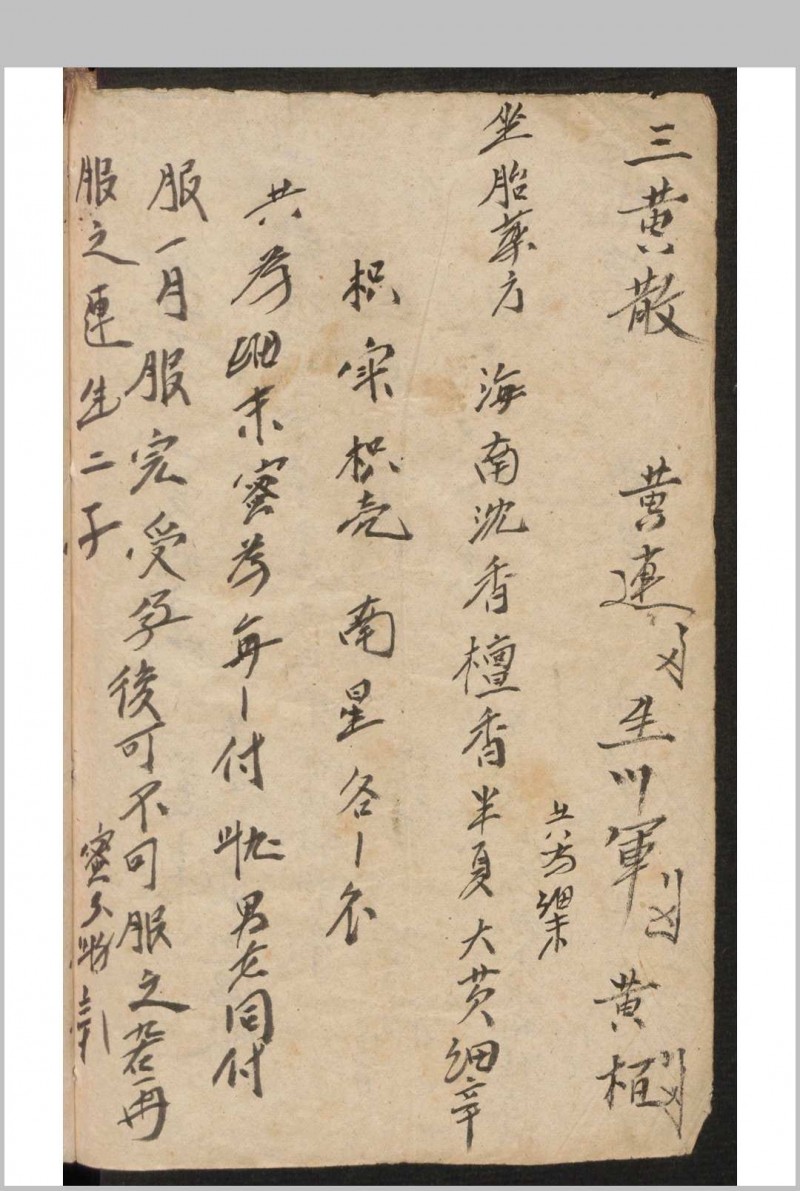 三黄散 黄連 生川軍 黄柏
共為細末
坐胎藥方 海南沈香檀香半夏大黄细辛
枳实枳壳南星各一
共為细末蜜為每一付 男女同付
服一月服完受孕後可不可服之若再
服之連生二子
蜜